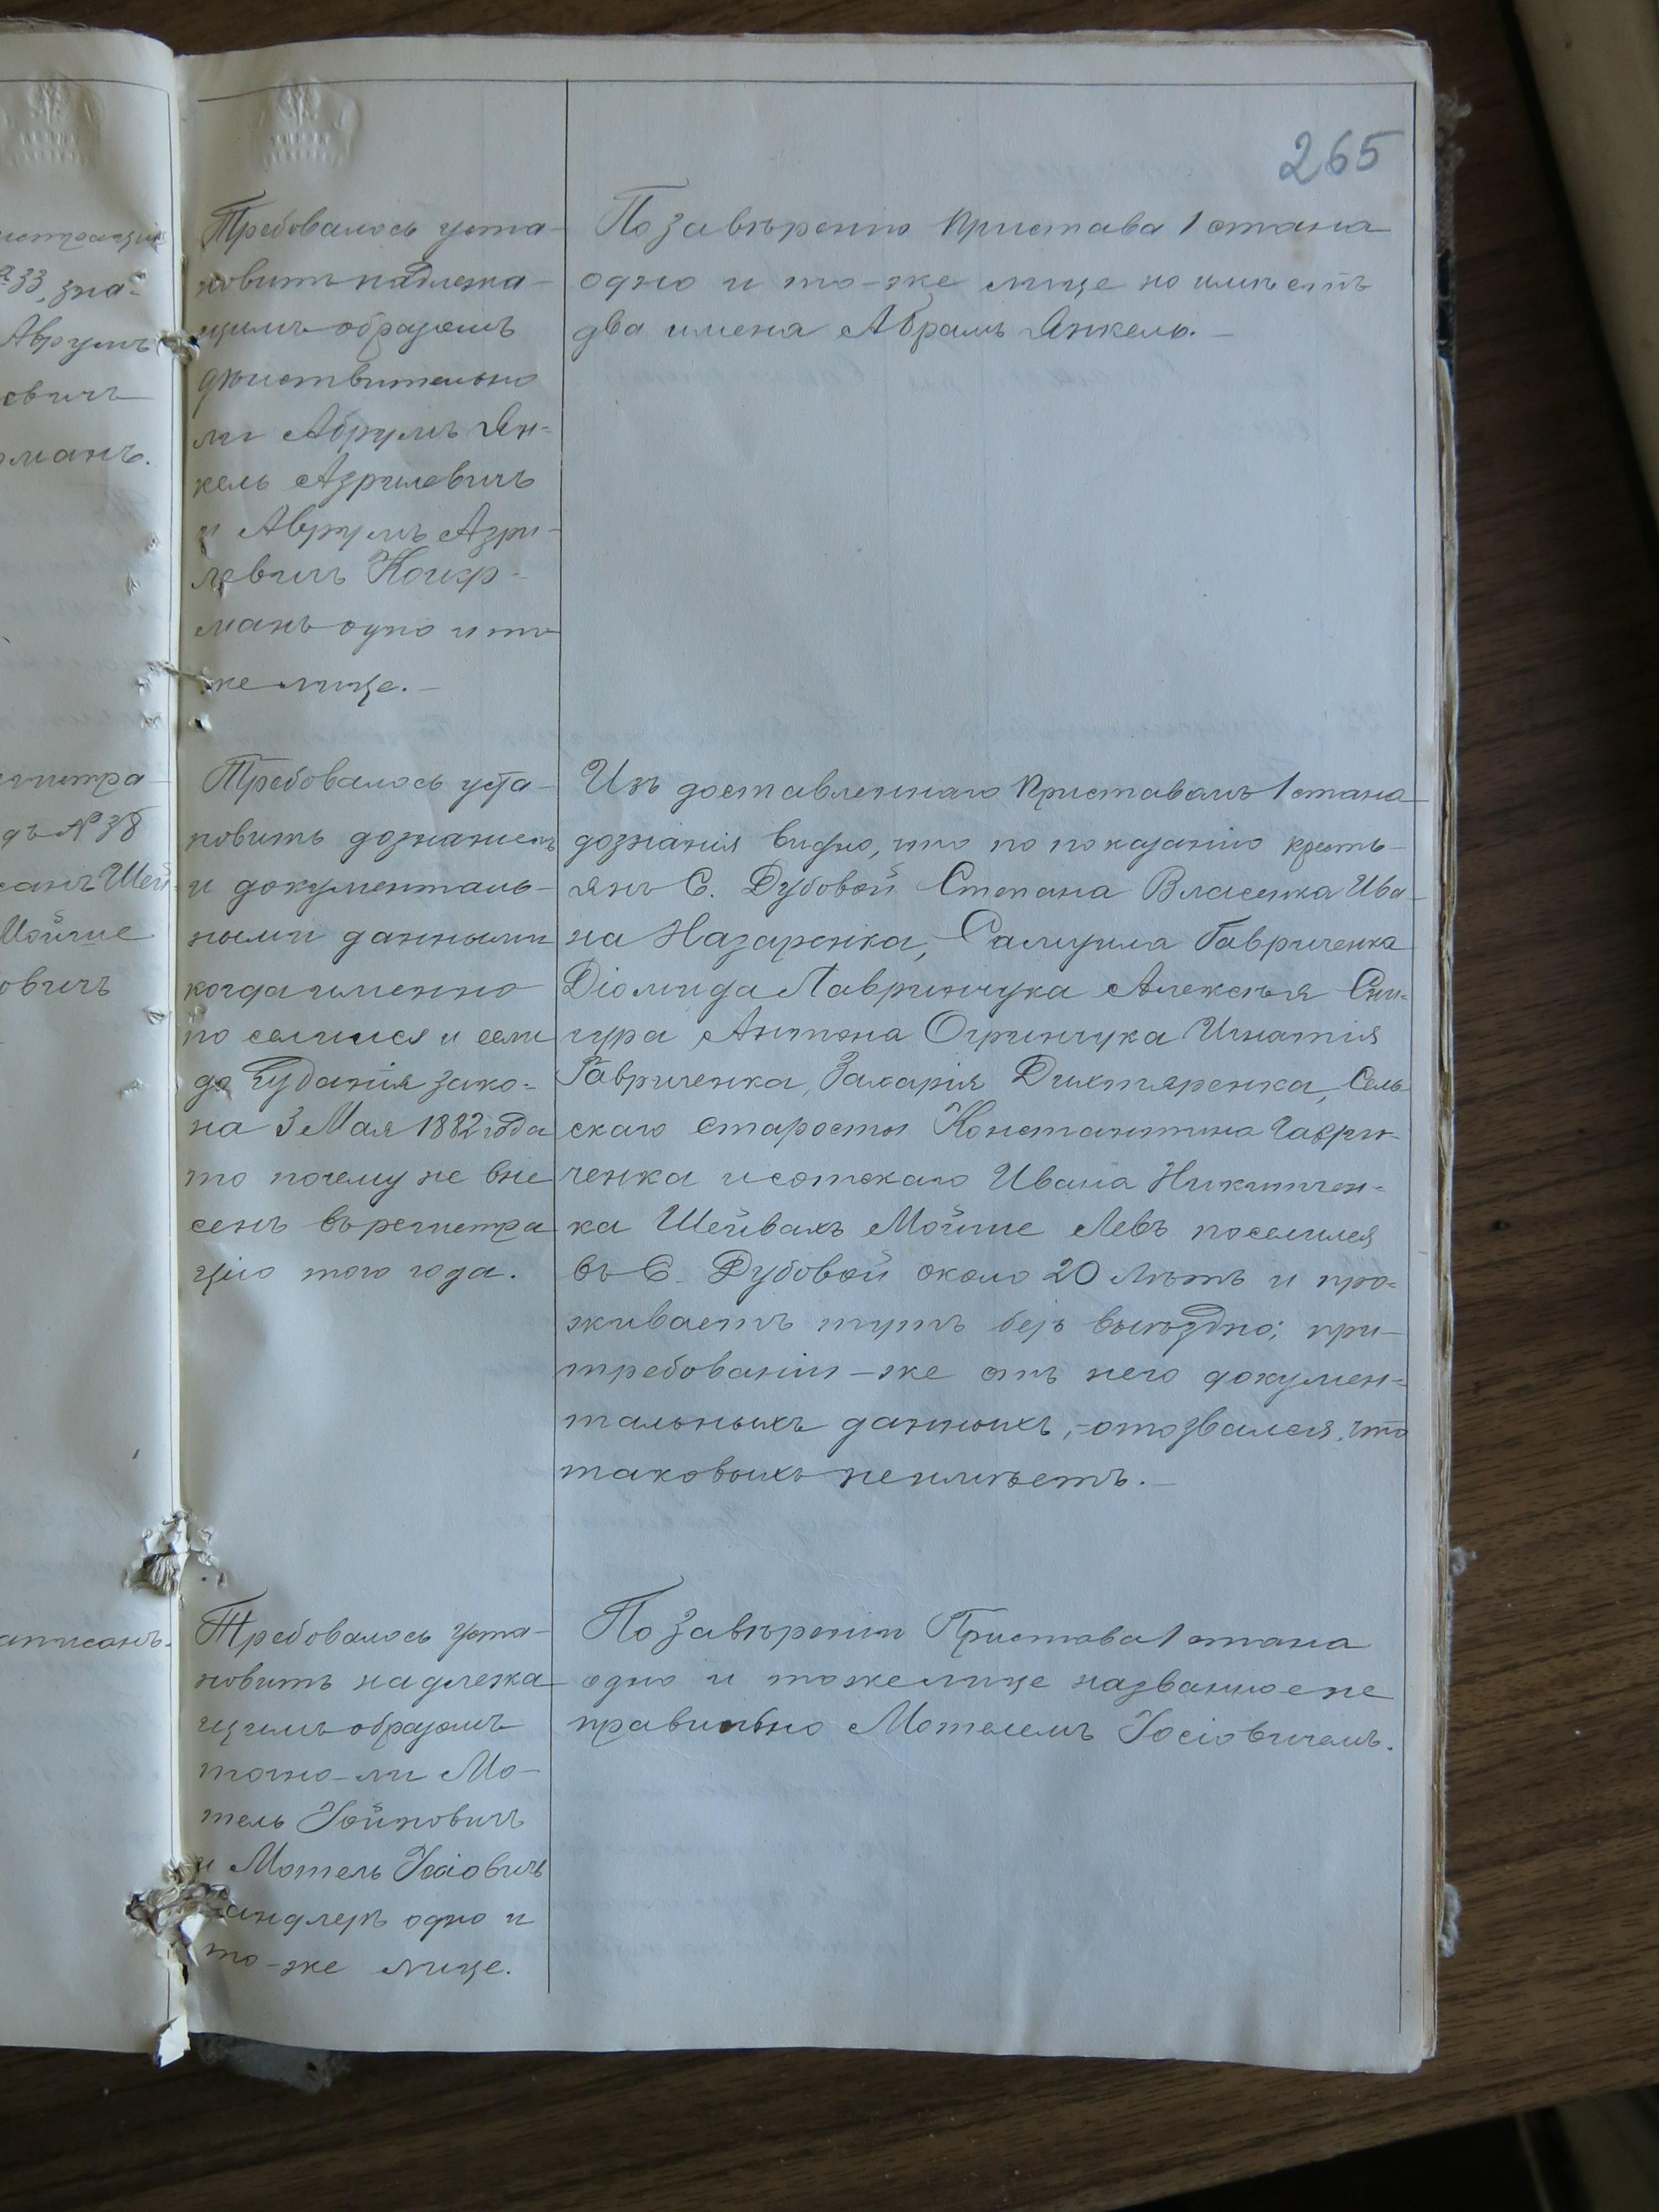 265
истраціи
33, зна-
Аврумъ
евичъ
манъ.
Требовалось уста-
новить надлежа-
щимъ образомъ
дѣйствительно
ли Абрумъ Ян-
кель Азрилевичъ
и Аврумъ Азри-
левичъ
манъ одно и то
же лице. —
По завѣренію Пристава 1 стана
одно и то-же лице но имѣетъ
два имена Абрамъ Янкель. —
гистра-
дъ № 38
санъ Шей-
Мойше
овичъ
Требовалось уста-
новить дознаніемъ
и документаль-
ными данными
когда именно
поселился и если
до изданія зако-
на 3 Мая 1882 года
то почему не вне
сенъ въ регистра
цію того года.
Изъ доставленнаго Приставомъ 1 стана
дознанія видно, что по показанію кресть-
янъ С. Дубовой Степана Власенка Ива-
на Назаренка, Самуила Гавриченка
Діомида Лавринчука Алексѣя Сни-
гура Антона Огринчука Игнатія
Гавриченка, Захарія Дихтяренка, Сель
скаго Старосты Константина Гаври-
ченка и сотскаго Ивана Никитчен-
ка Шейвахъ Мойше Левъ поселился
въ С. Дубовой около 20 лѣтъ и про-
живаетъ тутъ безъ выѣздно; при-
требованіи-же отъ него докумен-
тальныхъ данныхъ, - отозвался, что
таковыхъ неимѣетъ. —
аписанъ.
Требовалось уста-
новить надлежа
щимъ образомъ
точно-ли Мо-
тель Іойновичъ
и Мотель Іосіовичъ
андлеръ одно и
то-же лице.
По завѣренію Пристава 1 стана
одно и тоже лице названное не
правильно Мотелемъ Іосіовичемъ.